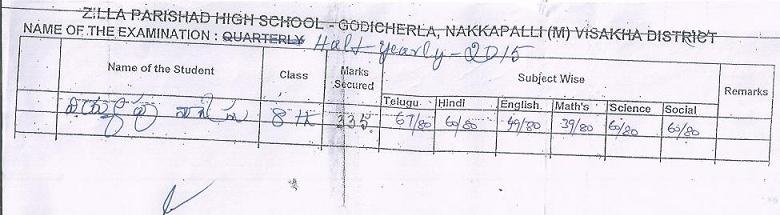 ZILLA PARISHAD HIGH SCHOOL - GODICHERLA, NAKKAPALLI (M) VISAKHA DISTRICT
NAME OF THE EXAMINATION : QUARTERLY Half yearly - 2015
Name of the Student Class Marks Secured Subject Wise Remarks
Telugu Hindi English Math's Science Social
8th 335 67/80 60/80 49/80 39/80 60/80 60/80